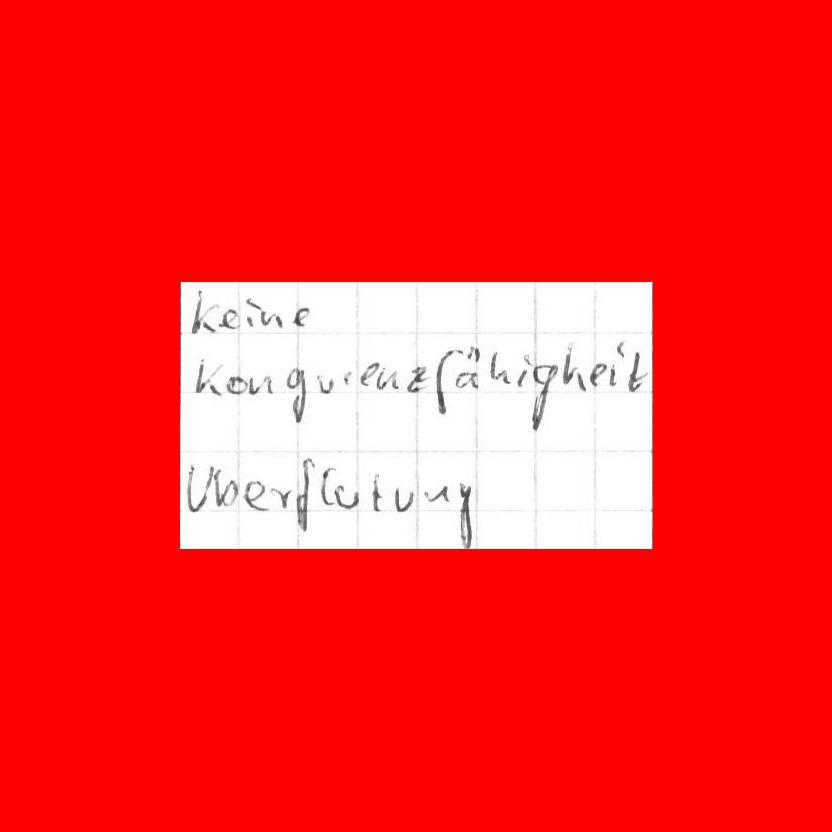 keine
Konqurenzfähigheit
Uberflutung